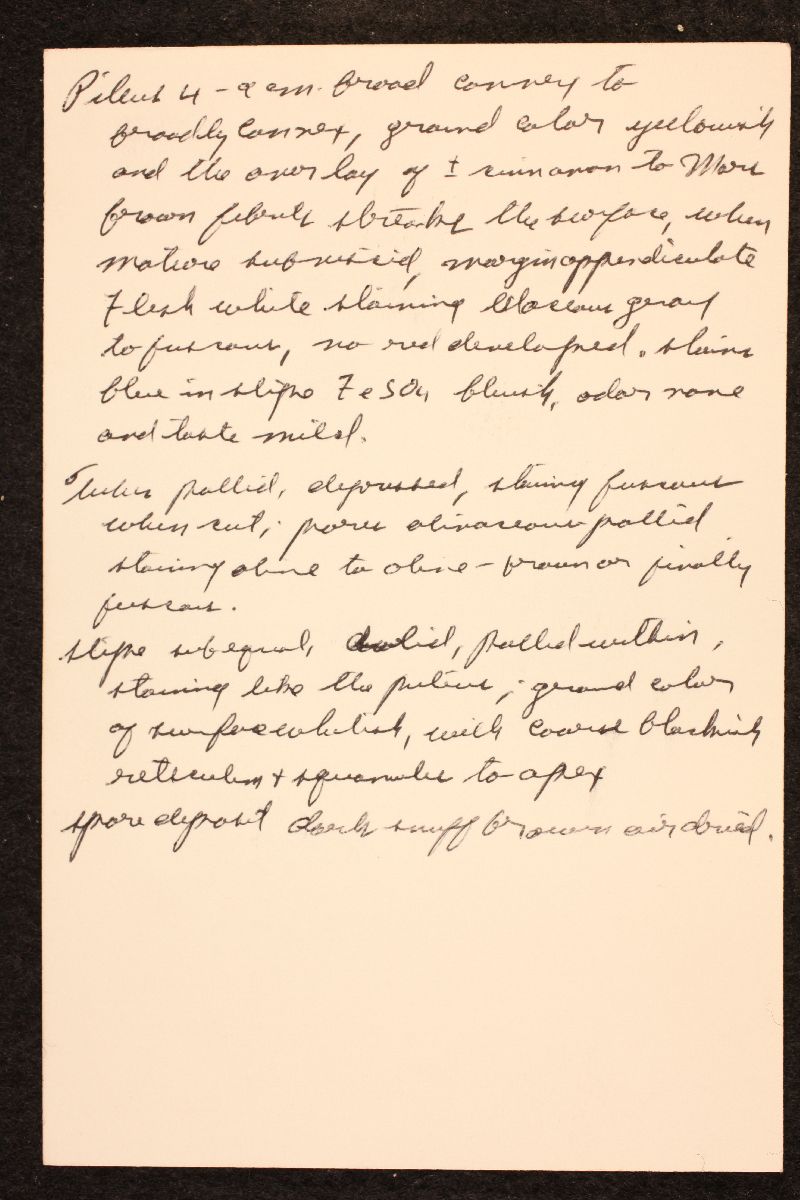 Pileus 4-9 cm. broad convex to
broadly convex, ground color yellowish
and the overlay of ± cinnamon to Mars
brown fibrils streaks the surface, when
mature subviscid, margin appendiculate
Flesh white staining lilaceous gray
to fuscous, no red developed. stains
blue in stipe FeSO4 bluish, odor none
and taste mild.
Tubes pallid, depressed, staining fuscous
when cut; pores olivaceous pallid
staining olive to olive-brown or finally
fuscous.
stipe subequal, solid, pallid within,
staining like the pileus; ground color
of surface whitish, with coarse blackish
reticulum + squamules to apex
spore deposit dark snuff brown air dried.